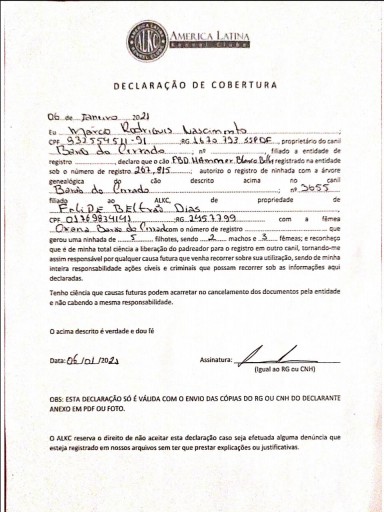 AMERICA LATINA
Kennel Clube
ALKC
DECLARAÇÃO DE COBERTURA
06 de Janeiro 2021
Eu Marco Rodrigues Nascimento ;
CPF 932554511-91 RG 1670793 SSPDF, proprietário do canil
Baxo do Cerrado, nº, filiado a entidade de
registro, declare que o cão PBD Hammer Blanco Belle registrado na entidade
sob o número de registro 267,815; autorizo o registro de ninhada com a árvore
genealógica do cão descrito acima no canil
Baxo do Cerrado; nº 3655
filiado ao ALKC de propriedade de
Felipe Beltrão Dias
CPF 01769934141 RG 2457799 com a fêmea
Oxana Baxo do Cerrado com o número de registro que
gerou uma ninhada de 5 filhotes, sendo 2 machos e 3 fêmeas; e reconheço
que é de minha total ciência a liberação do padreador para o registro em outro canil, tornando-me
assim responsável por qualquer causa futura que venha recorrer sobre sua utilização, sendo de minha
inteira responsabilidade ações cíveis e criminais que possam recorrer sob as informações aqui
declaradas.
Tenho ciência que causas futuras podem acarretar no cancelamento dos documentos pela entidade
e não cabendo a mesma responsabilidade.
O acima descrito é verdade e dou fé
Data: 06/01/2021 Assinatura:
(Igual ao RG ou CNH)
OBS: ESTA DECLARAÇÃO SÓ É VÁLIDA COM O ENVIO DAS CÓPIAS DO RG OU CNH DO DECLARANTE
ANEXO EM PDF OU FOTO.
O ALKC reserva o direito de não aceitar esta declaração caso seja efetuada alguma denúncia que
esteja registrado em nossos arquivos sem ter que prestar explicações ou justificativas.